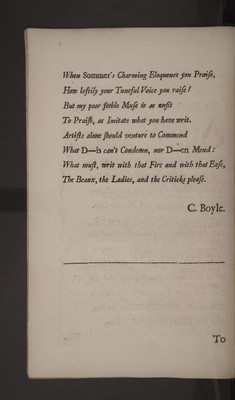 When Sommer's Charming Eloquence you Praise,
How loftily your Tuneful Voice you raise!
But my poor feeble Muse is as unfit
To Praise, as Imitate what you have writ.
Artists alone should venture to Commend
What D—is can't Condemn, nor D—en Mend:
What must, writ with that Fire and with that Ease,
The Beaux, the Ladies, and the Criticks please.
C. Boyle.
To